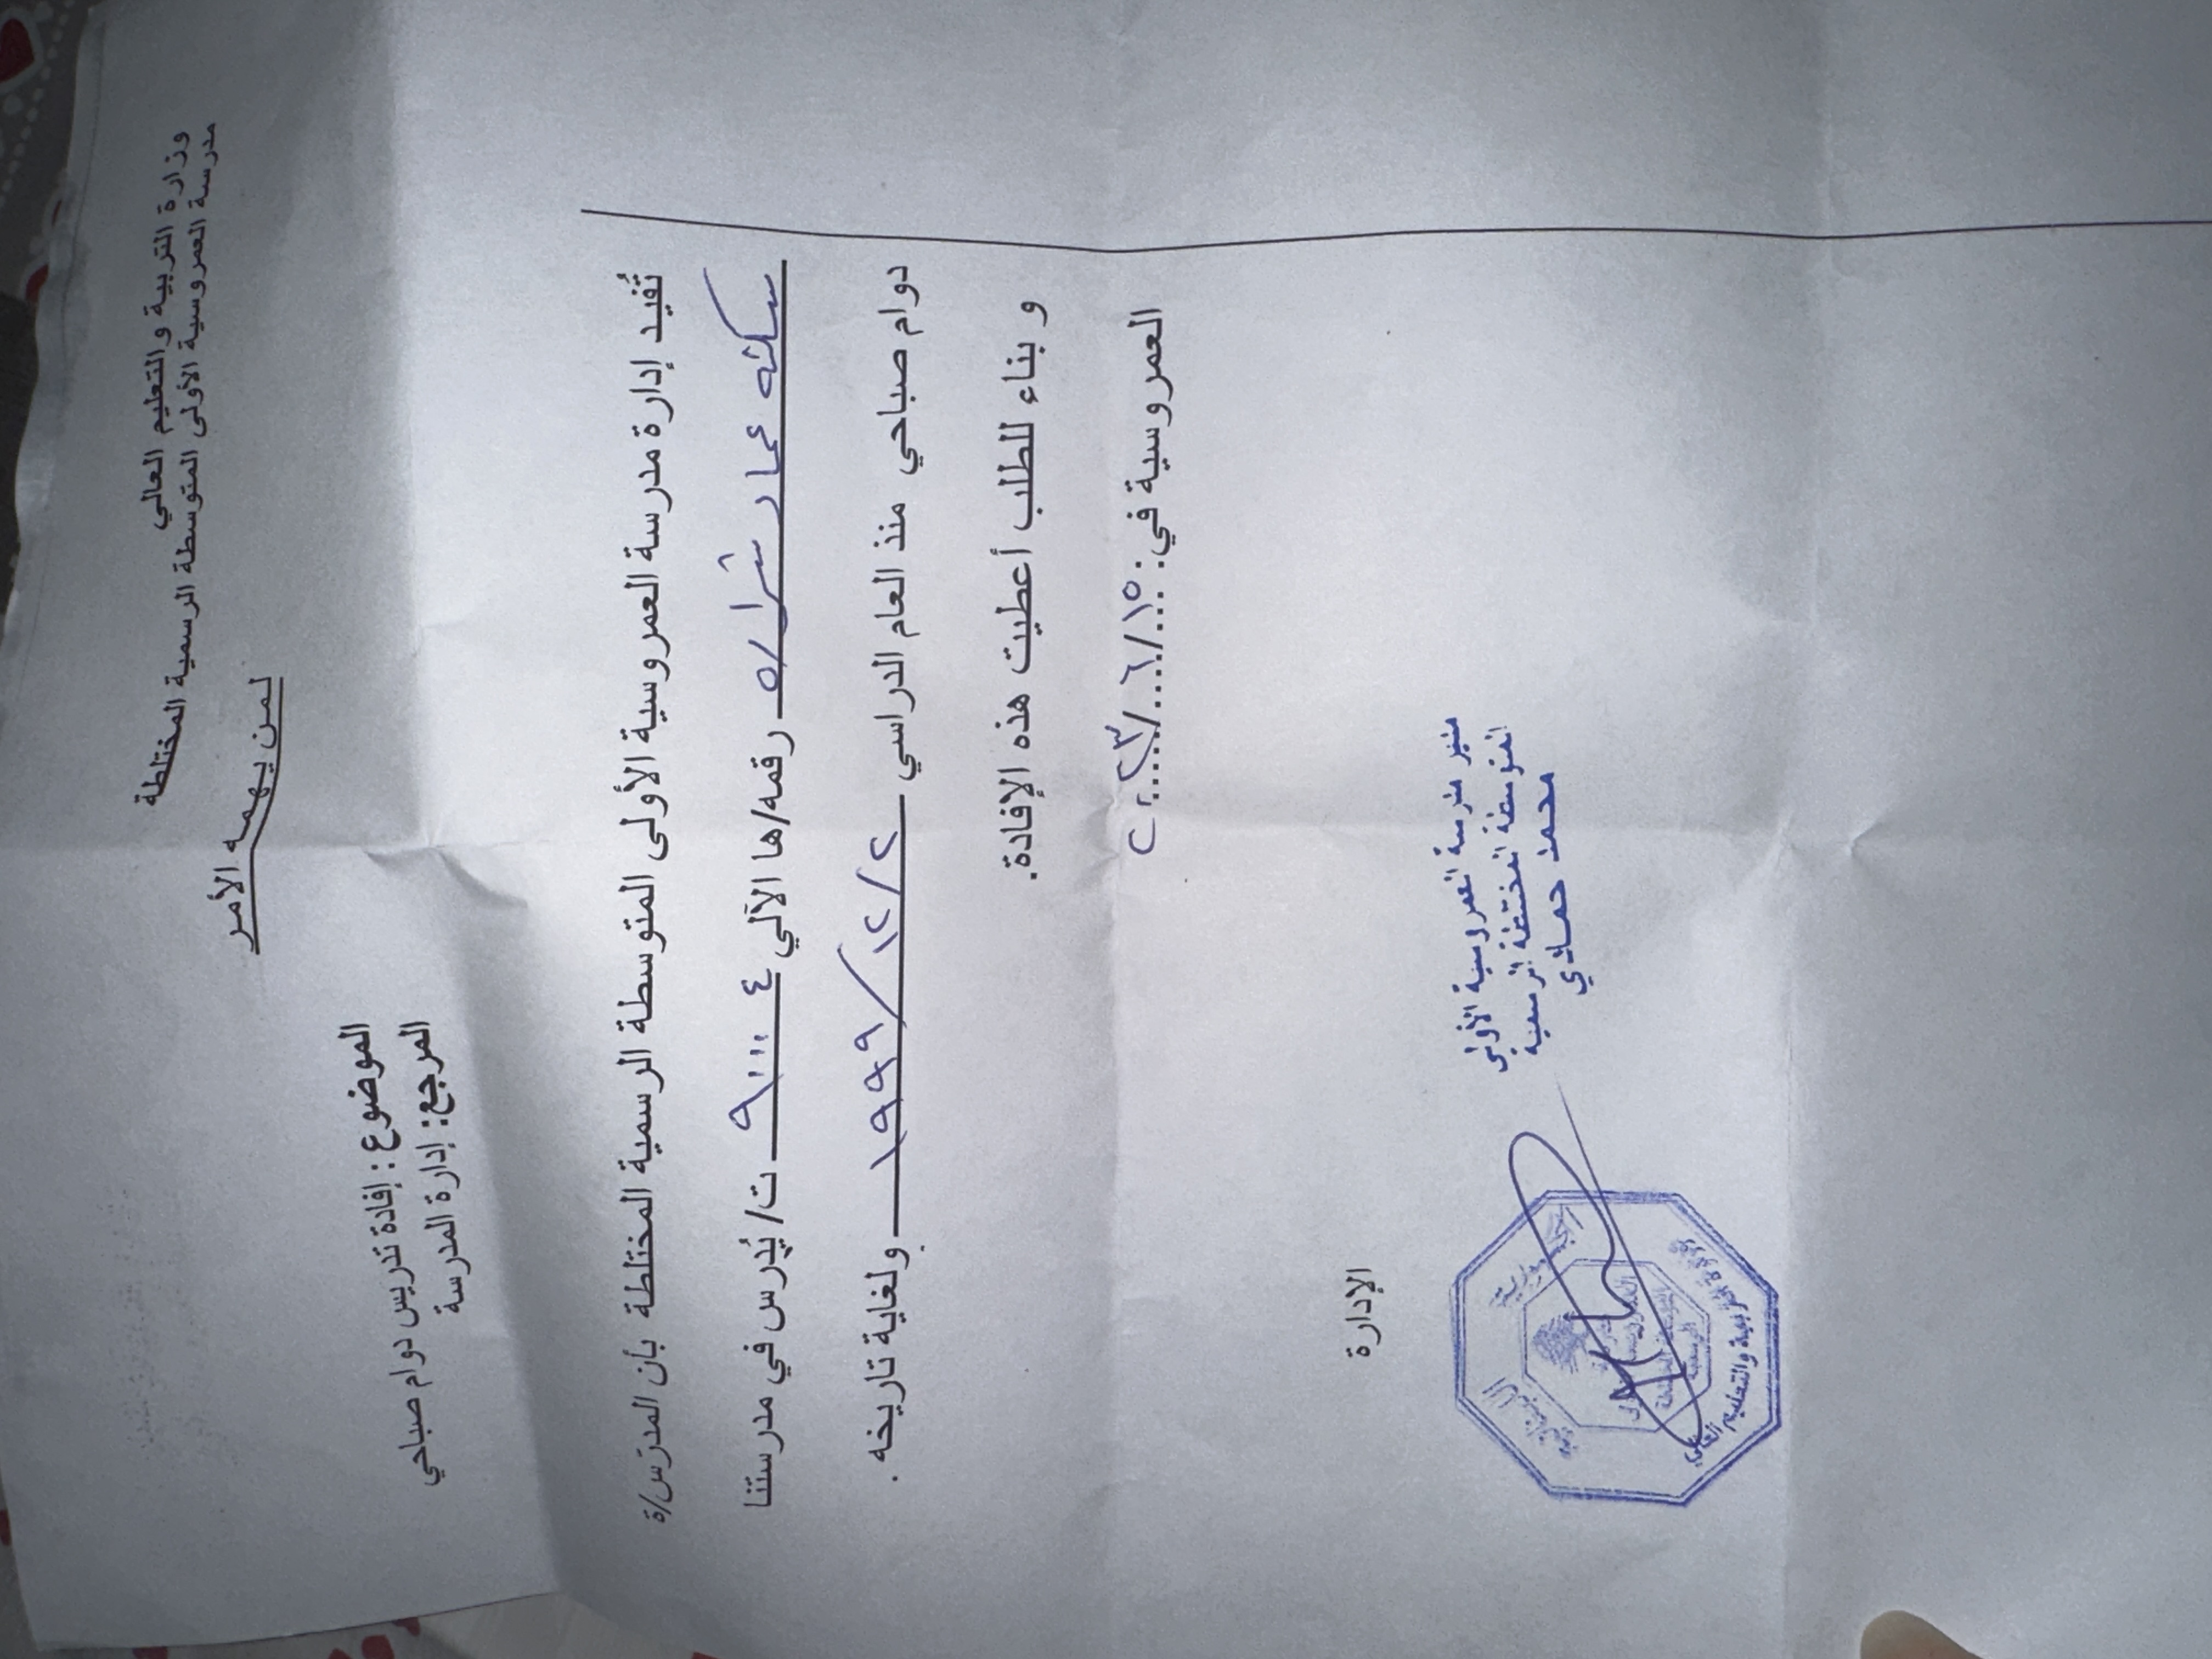 وزارة التربية والتعليم العالي
مدرسة العمروسية الأولى المتوسطة الرسمية المختلطة
لمن يهمه الأمر
الموضوع : إفادة تدريس دوام صباحي
المرجع: إدارة المدرسة
تُفيد إدارة مدرسة العمروسية الأولى المتوسطة الرسمية المختلطة بأن المدرّس/ة
عماد رقمه/ها الآلي ت/يُدرس في مدرستنا
دوام صباحي منذ العام الدراسي ١٩٩٩/١٢/٢ ولغاية تاريخه .
و بناء للطلب أعطيت هذه الإفادة.
العمروسية في: ١٥/٦/٢٠٢٣
الإدارة
مدير مدرسة العمروسية الأولى
المتوسطة المختلطة الرسمية
محمد حمادي
الجمهورية اللبنانية
وزارة التربية والتعليم العالي